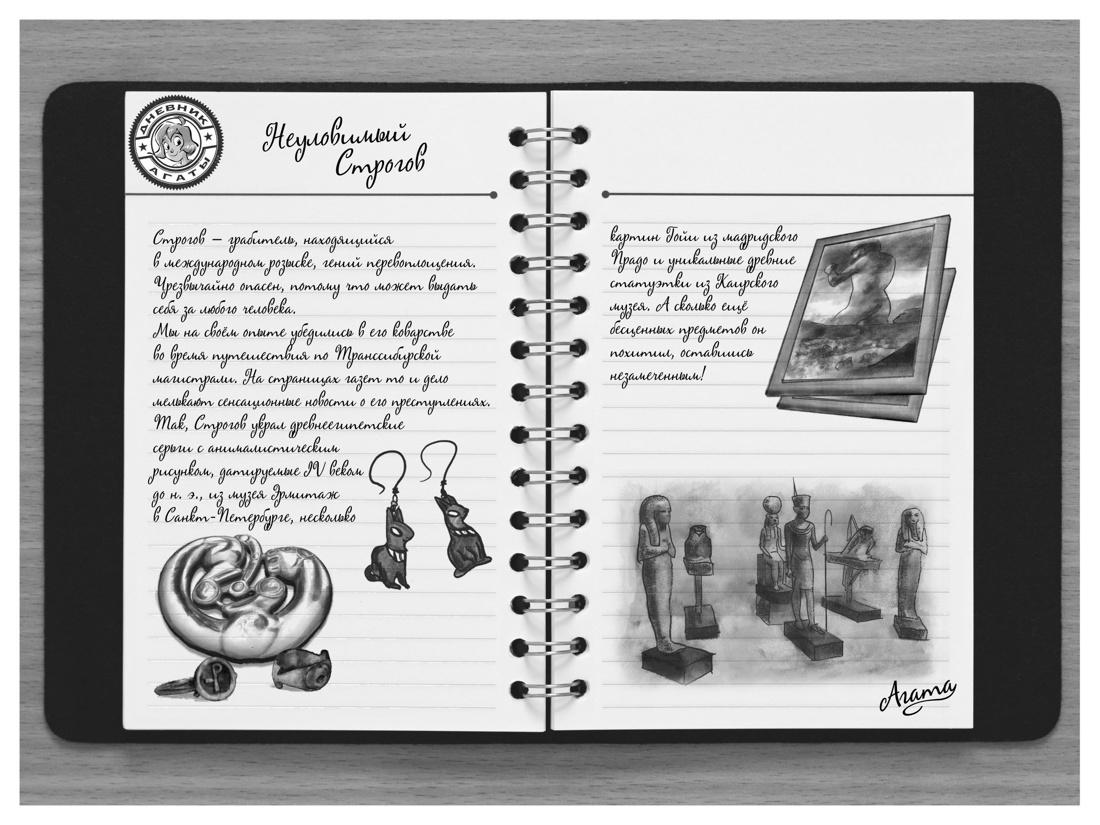 ДНЕВНИК
АГАТЫ
Неуловимый
Строгов
Строгов — грабитель, находящийся
в международном розыске, гений перевоплощения.
Чрезвычайно опасен, потому что может выдать
себя за любого человека.
Мы на своём опыте убедились в его коварстве
во время путешествия по Транссибирской
магистрали. На страницах газет то и дело
мелькают сенсационные новости о его преступлениях.
Так, Строгов украл древнеегипетские
серьги с анималистическим
рисунком, датируемые IV веком
до н. э., из музея Эрмитаж
в Санкт-Петербурге, несколько
картин Гойи из мадридского
Прадо и уникальные древние
статуэтки из Каирского
музея. А сколько ещё
бесценных предметов он
похитил, оставшись
незамеченным!
Агата